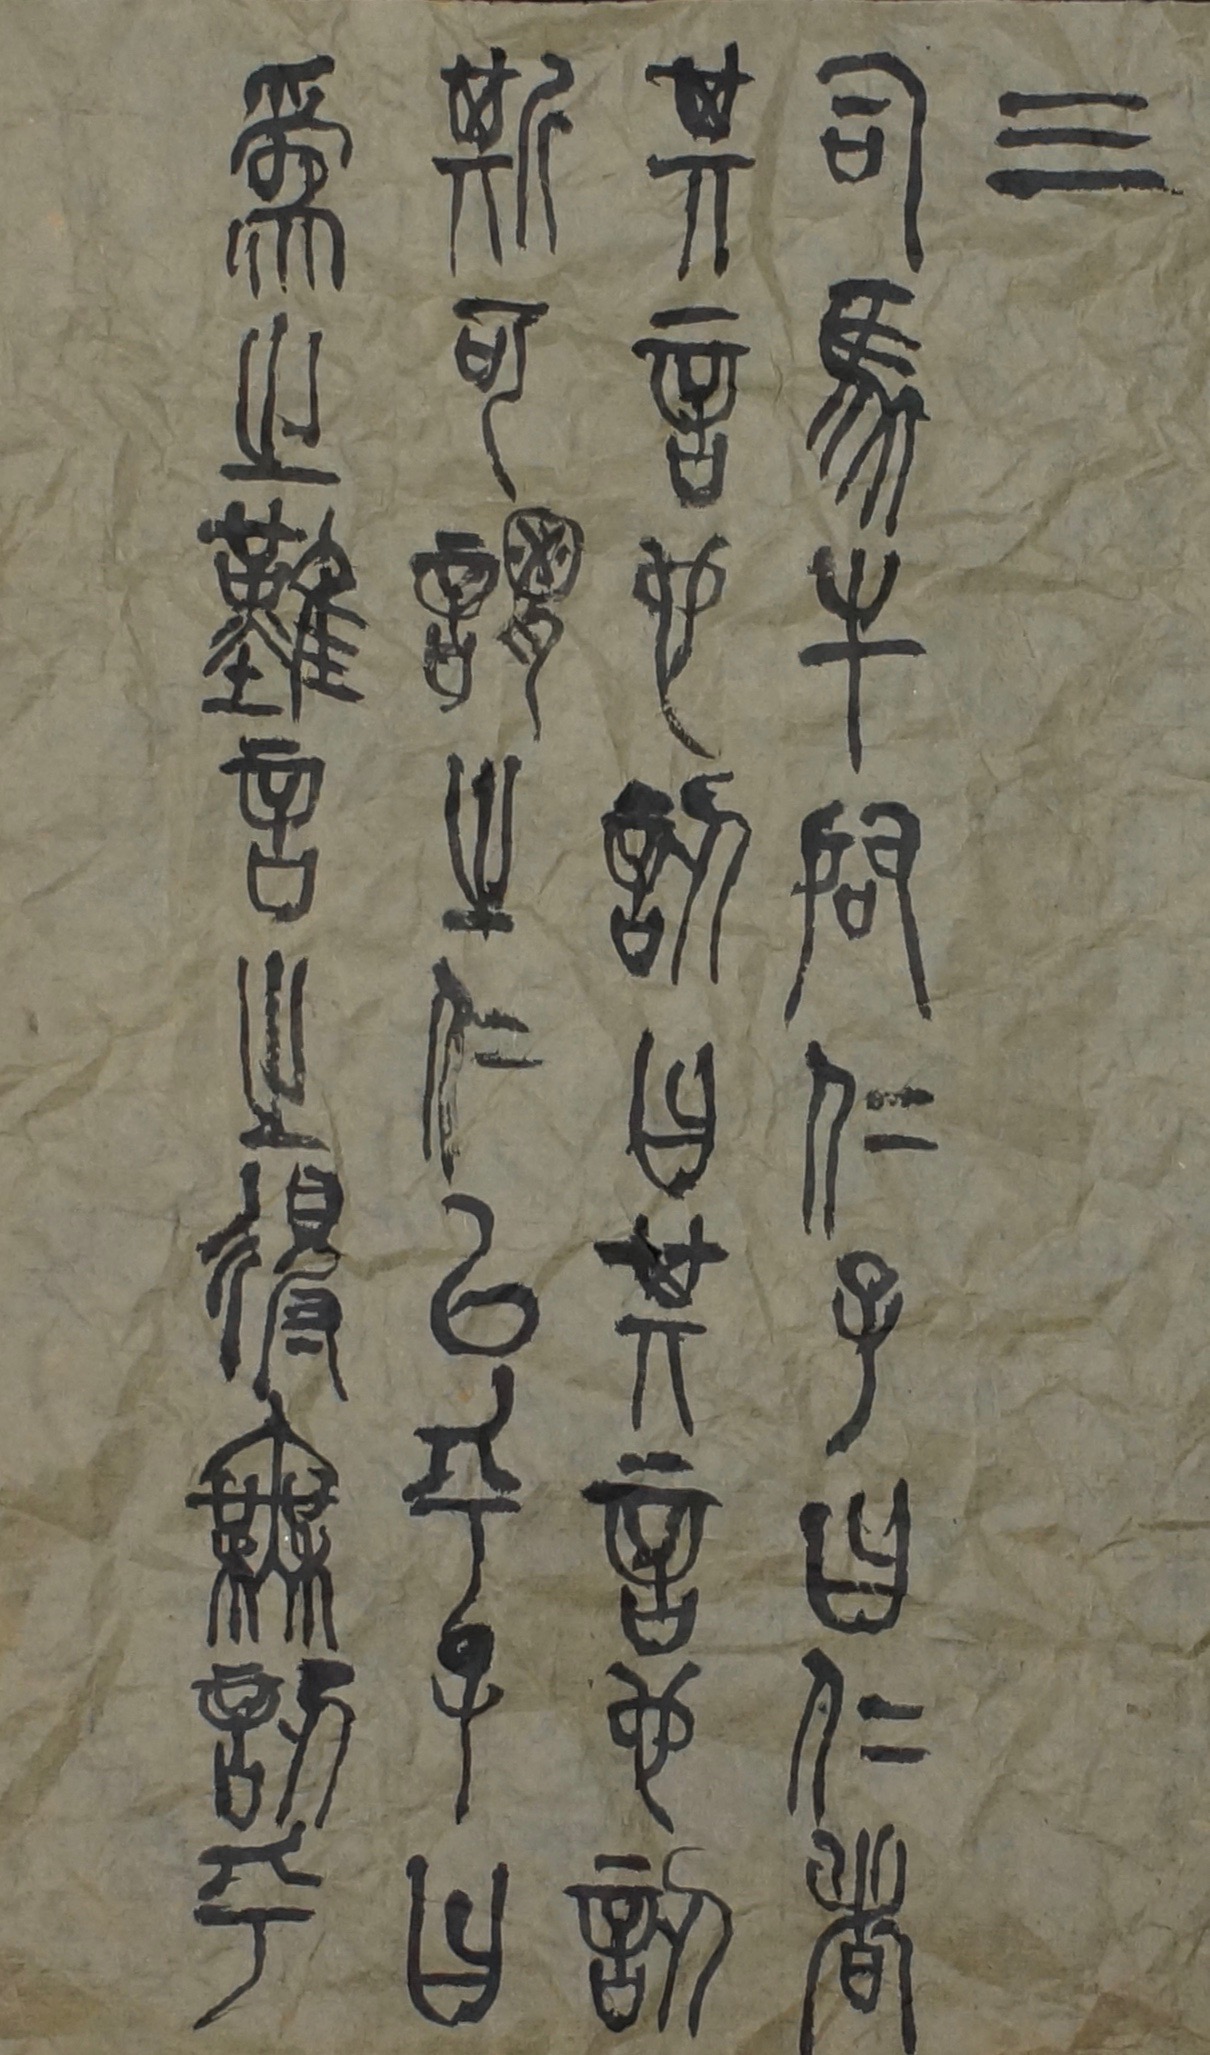 三
司馬牛問仁子曰仁者
其言也訒曰其言也訒
斯可謂之仁已乎子曰
爲之難言之得無訒乎